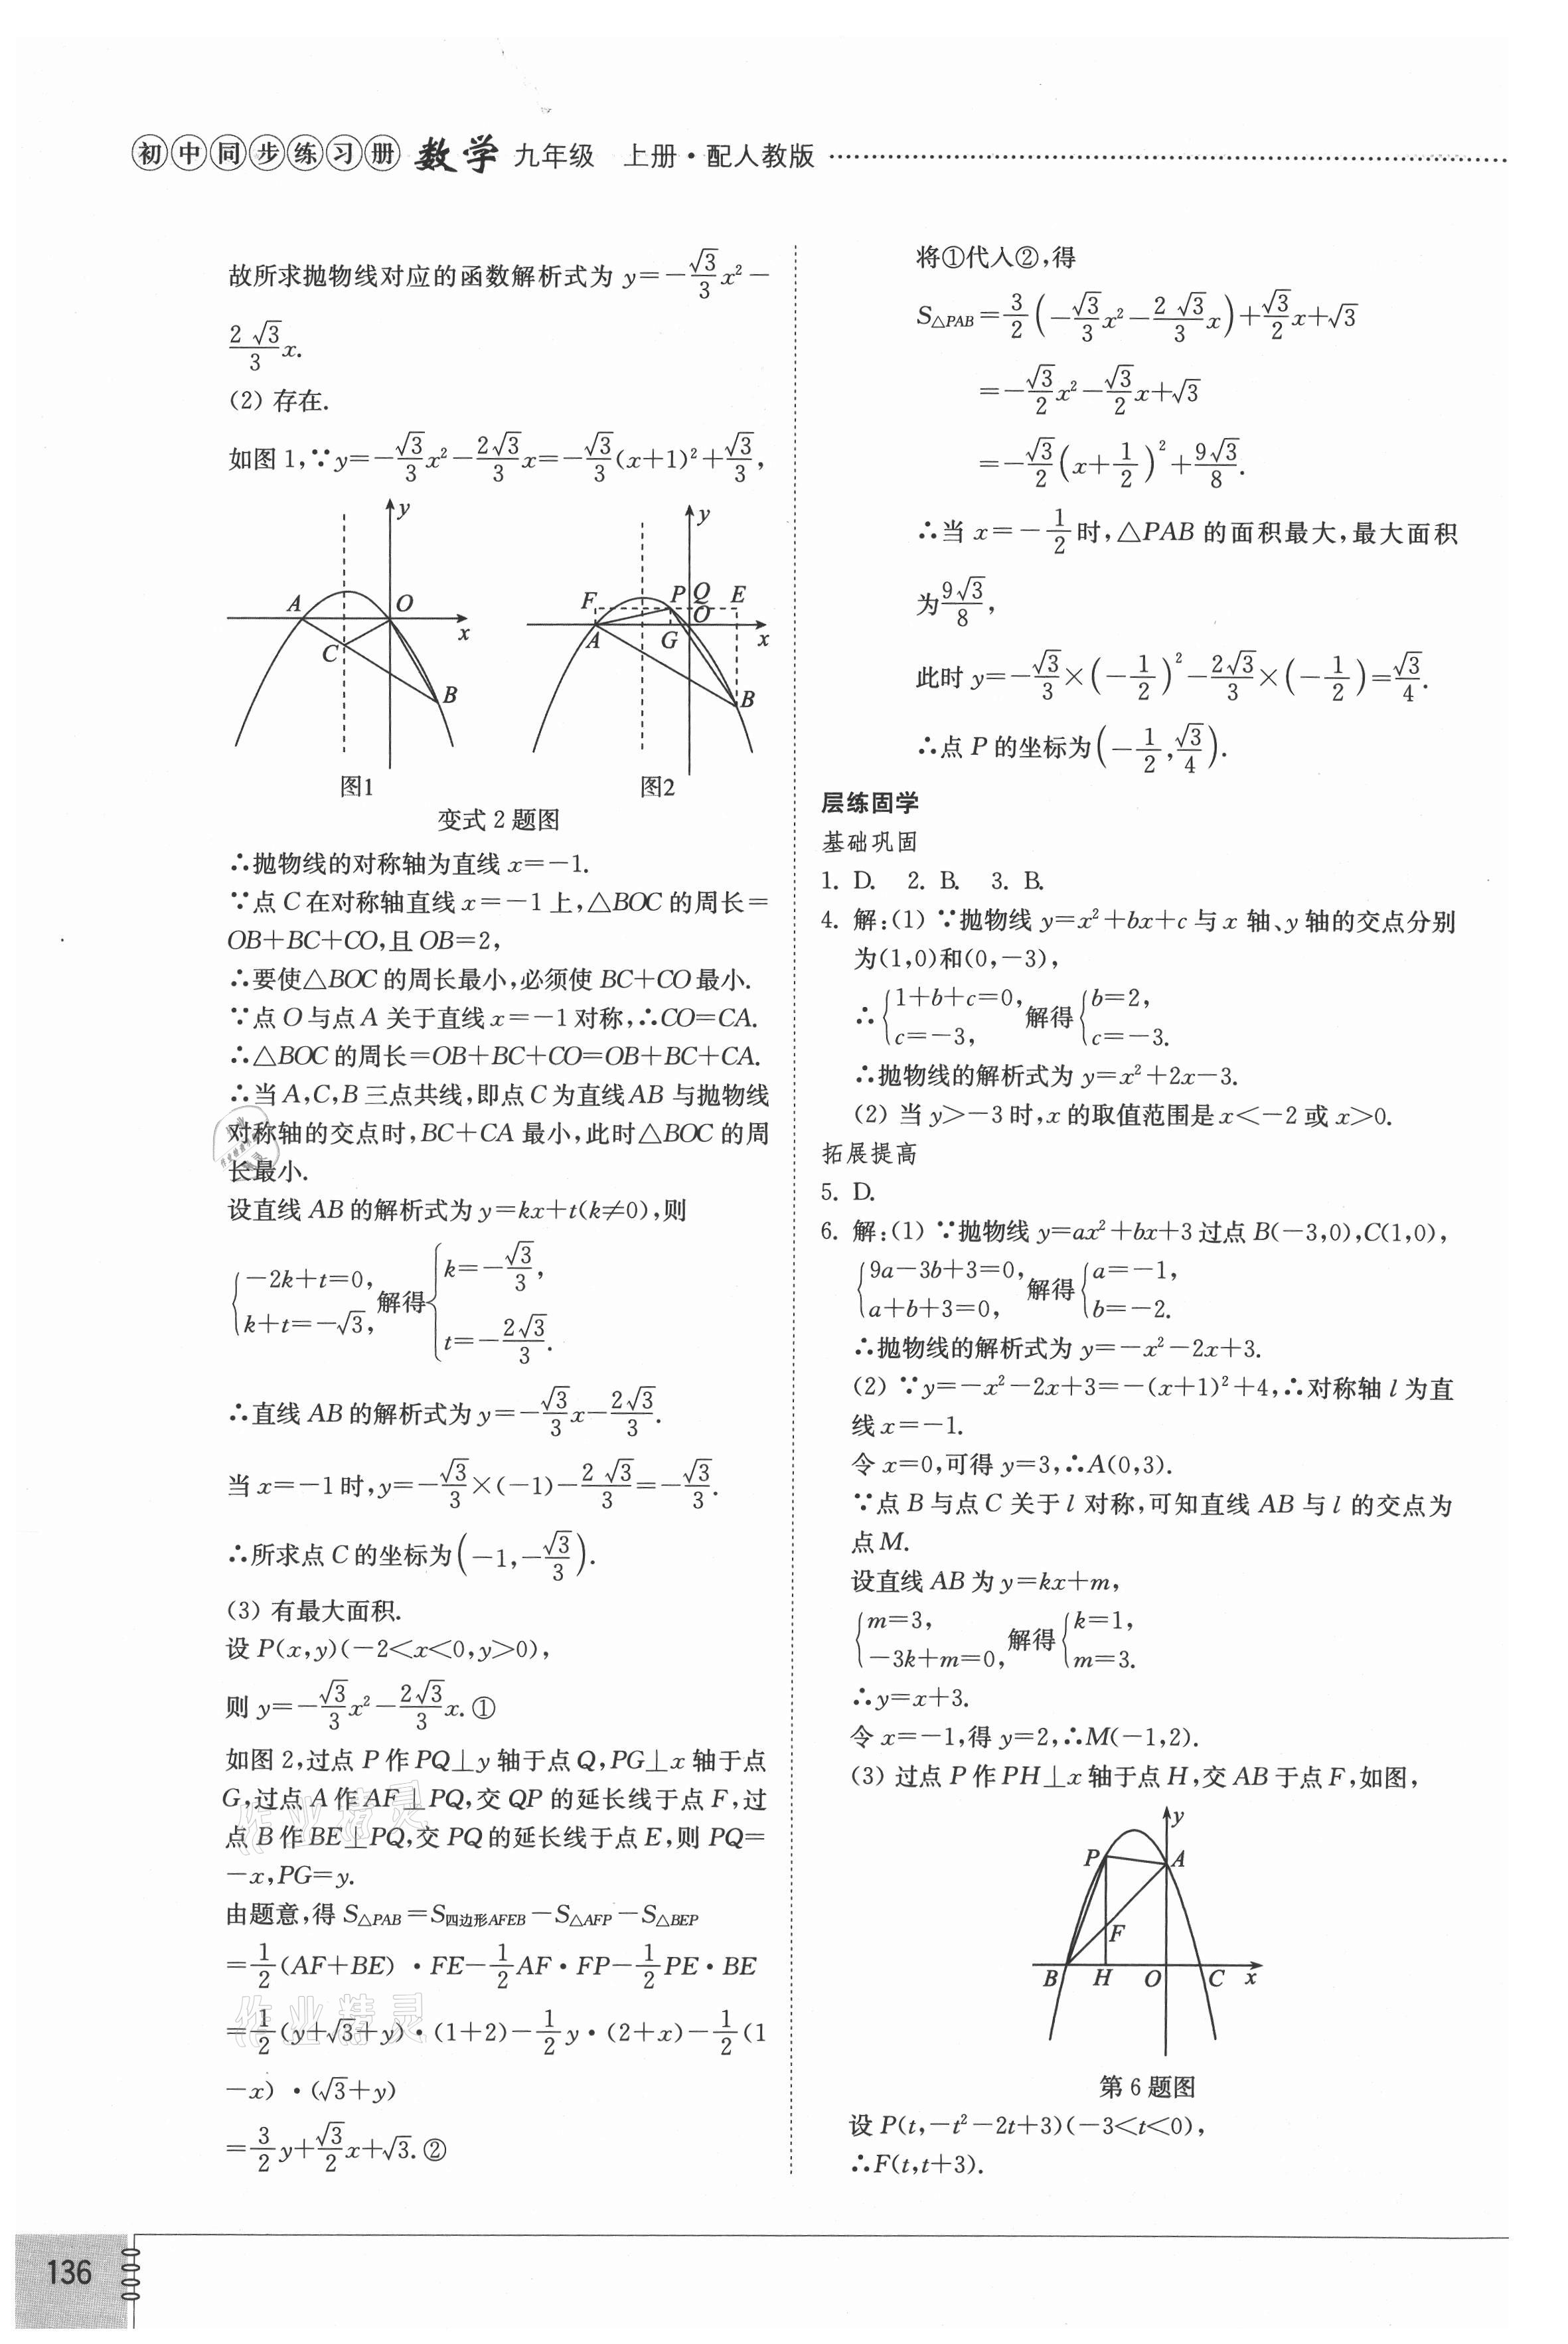 初中同步练习册 数学 九年级 上册·配人教版
故所求抛物线对应的函数解析式为 y=-\frac{√3}{3}x²-
\frac{2√3}{3}x.
(2) 存在.
如图1,∵y=-\frac{√3}{3}x²-\frac{2√3}{3}x=-\frac{√3}{3}(x+1)²+\frac{√3}{3},
y
A
O
x
C
B
图1
y
F
P
Q
E
O
A
G
x
B
图2
变式2题图
∴抛物线的对称轴为直线 x=-1.
∵点C在对称轴直线 x=-1上,△BOC的周长=
OB+BC+CO,且OB=2,
∴要使△BOC的周长最小,必须使BC+CO最小.
∵点O与点A关于直线x=-1对称,∴CO=CA.
∴△BOC的周长=OB+BC+CO=OB+BC+CA.
∴当A,C,B三点共线,即点C为直线AB与抛物线
对称轴的交点时,BC+CA最小,此时△BOC的周
长最小.
设直线AB的解析式为y=kx+t(k≠0),则
{-2k+t=0, k+t=-√3, 解得{k=-\frac{√3}{3}, t=-\frac{2√3}{3}.
∴直线AB的解析式为y=-\frac{√3}{3}x-\frac{2√3}{3}.
当x=-1时,y=-\frac{√3}{3}×(-1)-\frac{2√3}{3}=-\frac{√3}{3}.
∴所求点C的坐标为(-1,-\frac{√3}{3}).
(3) 有最大面积.
设P(x,y)(-2<x<0,y>0),
则y=-\frac{√3}{3}x²-\frac{2√3}{3}x.①
如图2,过点P作PQ⊥y轴于点Q,PG⊥x轴于点
G,过点A作AF⊥PQ,交QP的延长线于点F,过
点B作BE⊥PQ,交PQ的延长线于点E,则PQ=
-x,PG=y.
由题意,得S△PAB=S四边形AFEB-S△AFP-S△BEP
=\frac{1}{2}(AF+BE)·FE-\frac{1}{2}AF·FP-\frac{1}{2}PE·BE
=\frac{1}{2}(y+√3+y)·(1+2)-\frac{1}{2}y·(2+x)-\frac{1}{2}(1
-x)·(√3+y)
=\frac{3}{2}y+\frac{√3}{2}x+√3.②
作业精灵
作业精灵
将①代入②,得
S△PAB=\frac{3}{2}(-\frac{√3}{3}x²-\frac{2√3}{3}x)+\frac{√3}{2}x+√3
=-\frac{√3}{2}x²-\frac{√3}{2}x+√3
=-\frac{√3}{2}(x+\frac{1}{2})²+\frac{9√3}{8}.
∴当x=-\frac{1}{2}时,△PAB的面积最大,最大面积
为\frac{9√3}{8},
此时y=-\frac{√3}{3}×(-\frac{1}{2})²-\frac{2√3}{3}×(-\frac{1}{2})=\frac{√3}{4}.
∴点P的坐标为(-\frac{1}{2},\frac{√3}{4}).
层练固学
基础巩固
1. D. 2. B. 3. B.
4. 解:(1) ∵抛物线y=x²+bx+c与x轴、y轴的交点分别
为(1,0)和(0,-3),
∴{1+b+c=0, c=-3, 解得{b=2, c=-3.
∴抛物线的解析式为y=x²+2x-3.
(2) 当y>-3时,x的取值范围是x<-2或x>0.
拓展提高
5. D.
6. 解:(1) ∵抛物线y=ax²+bx+3过点B(-3,0),C(1,0),
{9a-3b+3=0, a+b+3=0, 解得{a=-1, b=-2.
∴抛物线的解析式为y=-x²-2x+3.
(2) ∵y=-x²-2x+3=-(x+1)²+4,∴对称轴l为直
线x=-1.
令x=0,可得y=3,∴A(0,3).
∵点B与点C关于l对称,可知直线AB与l的交点为
点M.
设直线AB为y=kx+m,
{m=3, -3k+m=0, 解得{k=1, m=3.
∴y=x+3.
令x=-1,得y=2,∴M(-1,2).
(3) 过点P作PH⊥x轴于点H,交AB于点F,如图,
y
P
A
F
B
H
O
C
x
第6题图
设P(t,-t²-2t+3)(-3<t<0),
∴F(t,t+3).
136